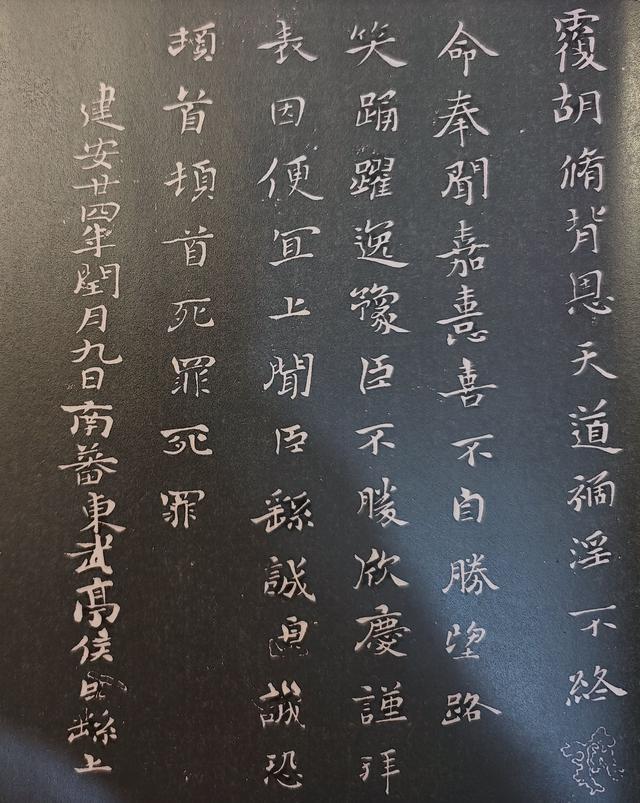 覆胡脩背恩天道禍淫不終
命奉聞嘉憙喜不自勝望路
笑踊躍逸豫臣不勝欣慶謹拜
表因便宜上聞臣繇誠誠恐
頓首頓首死罪死罪
建安廿四年閏月九日南蕃東武亭侯臣繇上